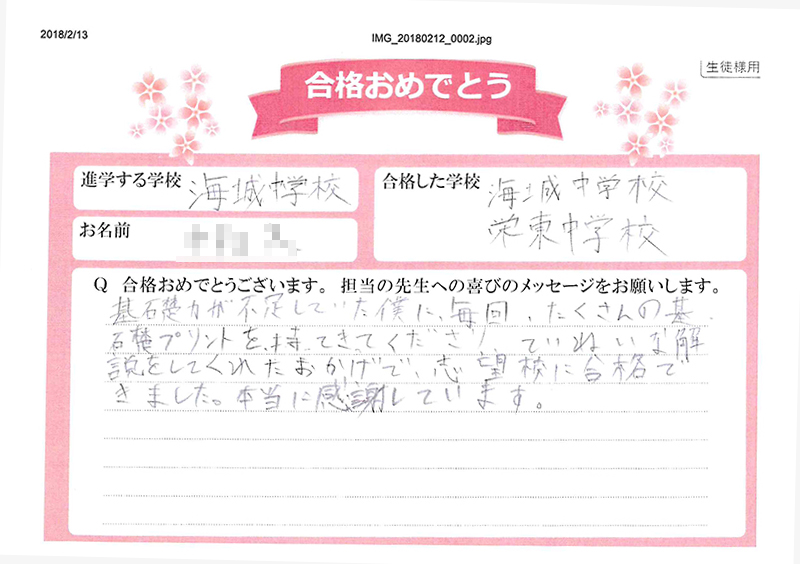 2018/2/13
IMG_20180212_0002.jpg
生徒様用
合格おめでとう
進学する学校 海城中学校
合格した学校 海城中学校
栄東中学校
お名前
Q 合格おめでとうございます。担当の先生への喜びのメッセージをお願いします。
基礎力が不足していた僕に、毎回、たくさんの基
礎プリントを、持ってきてくださり、ていねいな解
説をしてくれたおかげで、志望校に合格で
きました。本当に感謝しています。